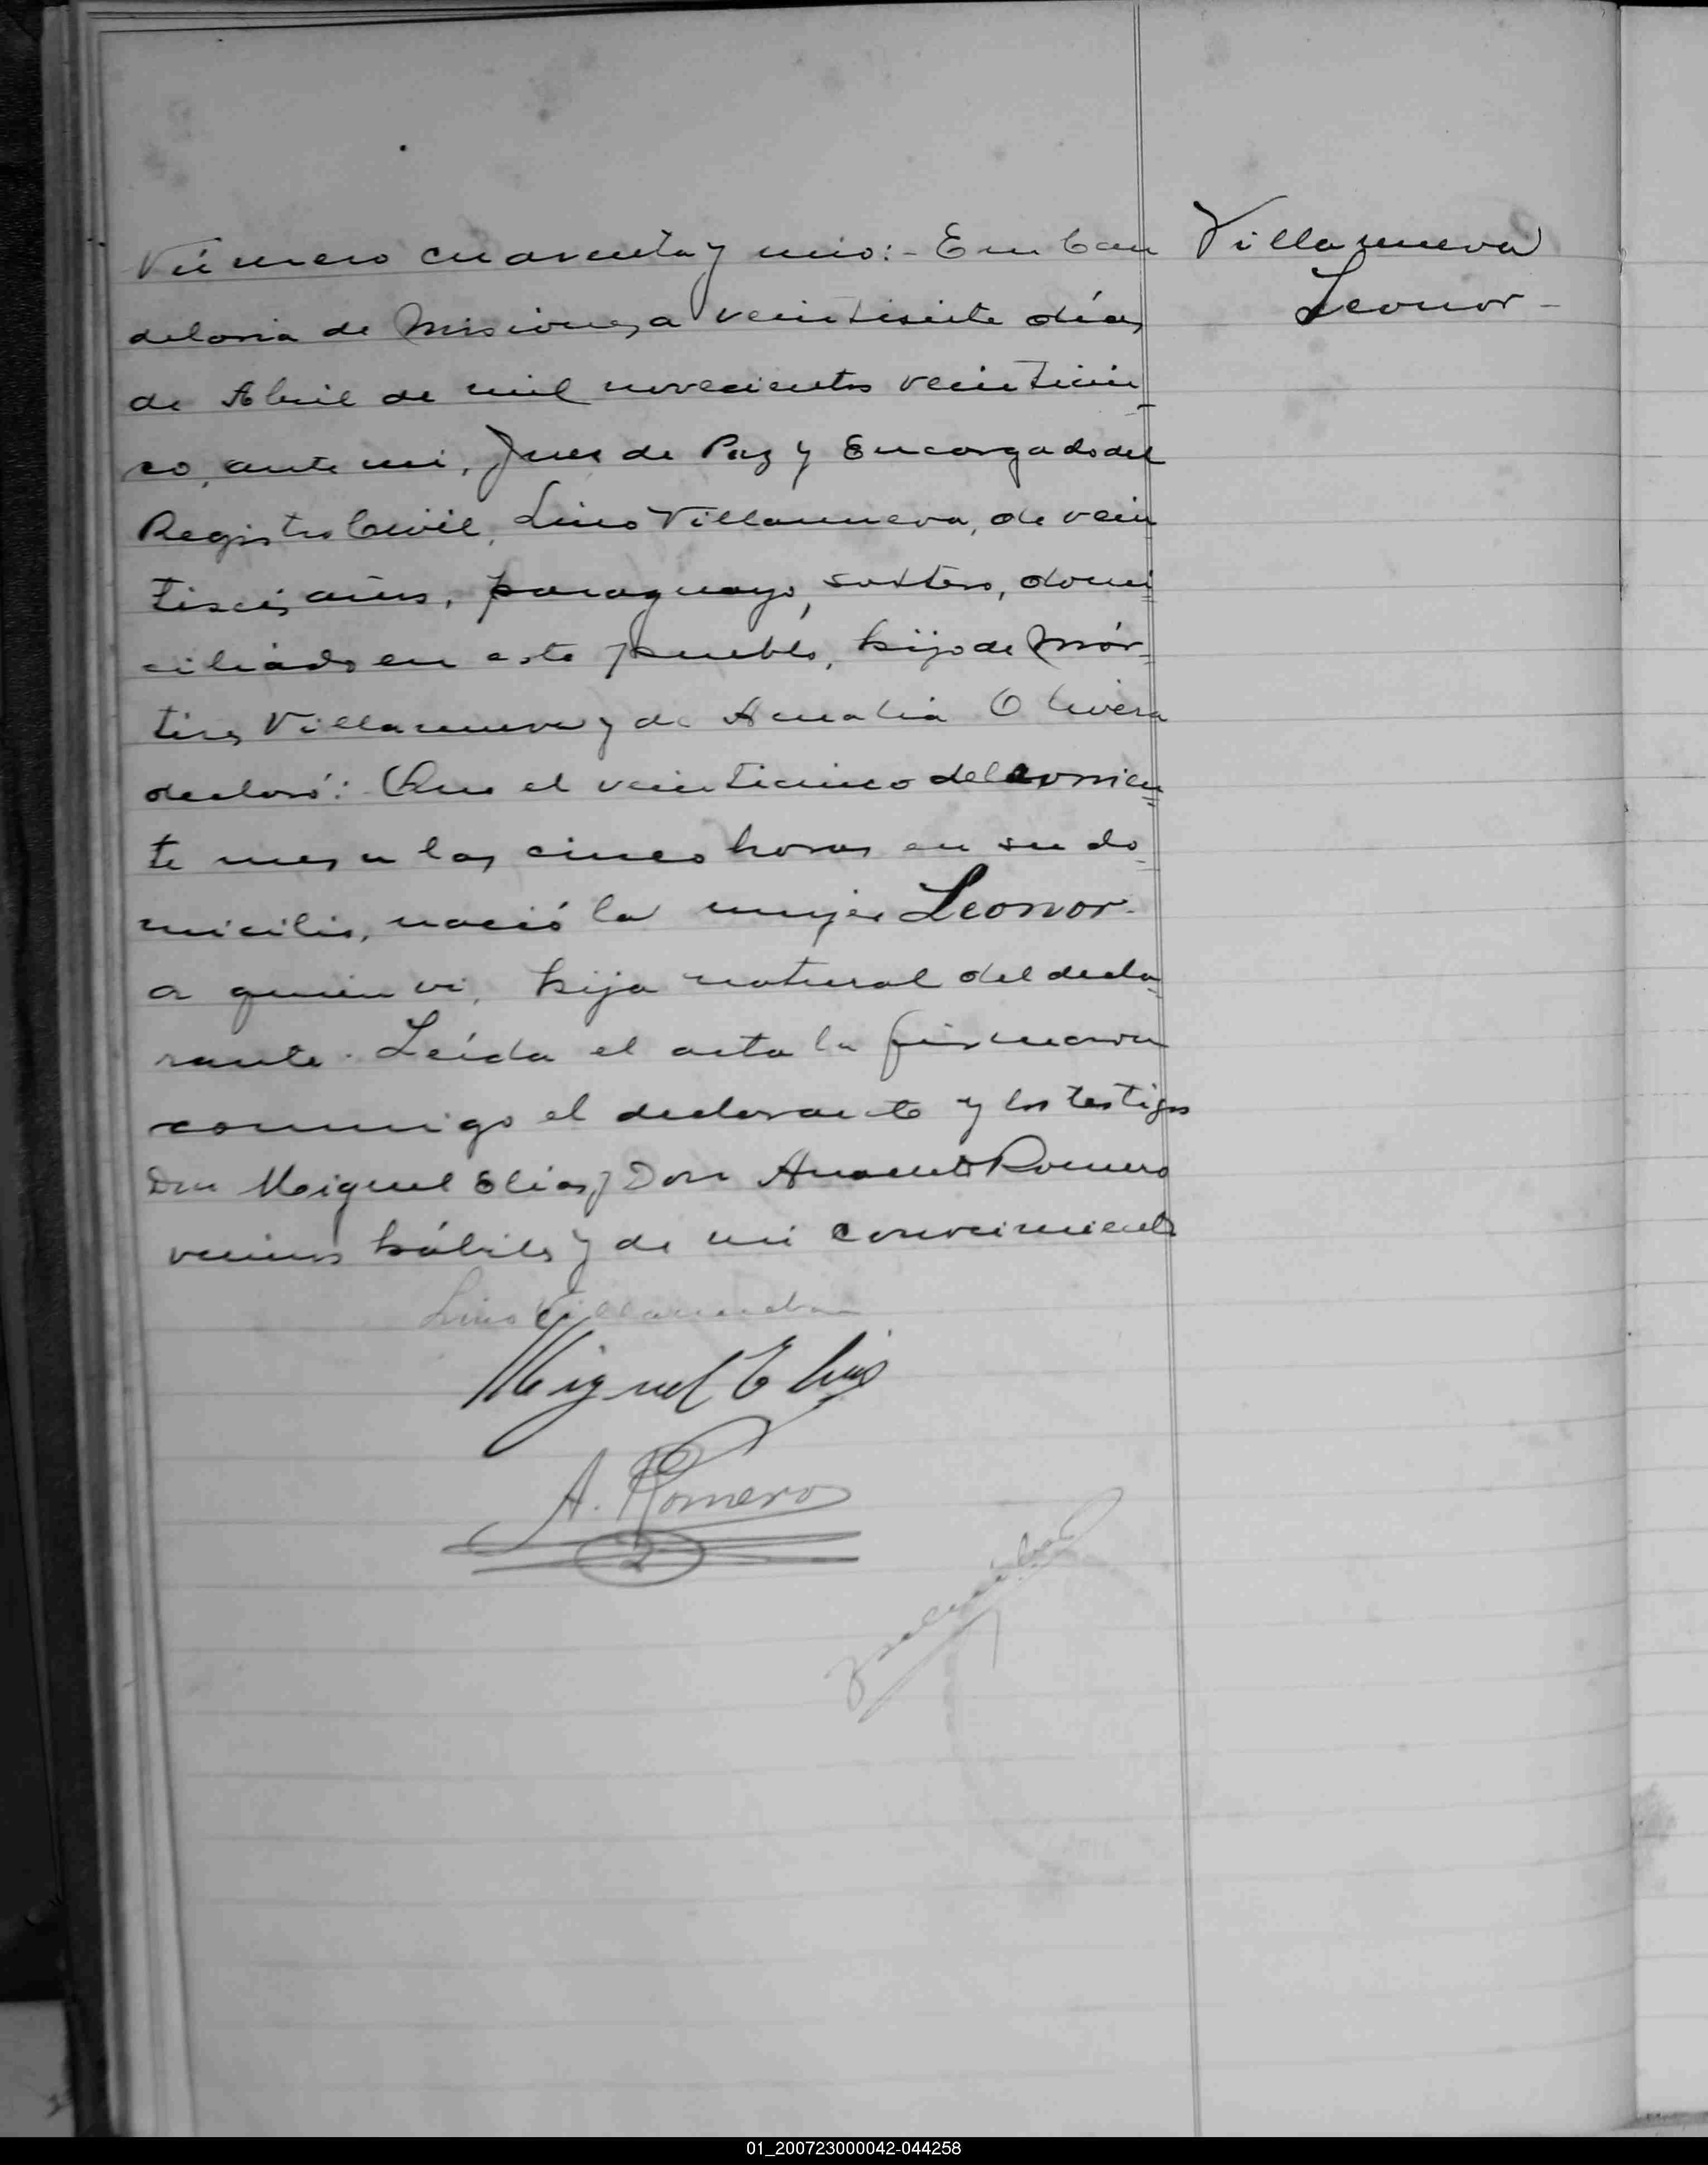 Número cuarenta y uno:- En Can
Villanueva
Leonor -
delaria de Misiones, a veintisiete días
de Abril de mil novecientos veinticin-
co, ante mi, Juez de Paz y Encargado del
Registro Civil, Lino Villanueva, de vein
tiseis años, paraguayo, soltero, domi
ciliado en este pueblo, hijo de Már-
tires Villanueva y de Amalia Olivera
declaró: Que el veinticinco del corrien
te mes a las cinco horas en su do-
micilio, nació la mujer Leonor.
a quien vi, hija natural del decla
rante. Leída el acta la firmaron
conmigo el declarante y los testigos
Don Miguel Elias y Don Anacleto Romero
vecinos hábiles y de mi conocimiento
Lino Villanueba
Miguel Elias
A. Romero
01_200723000042-044258